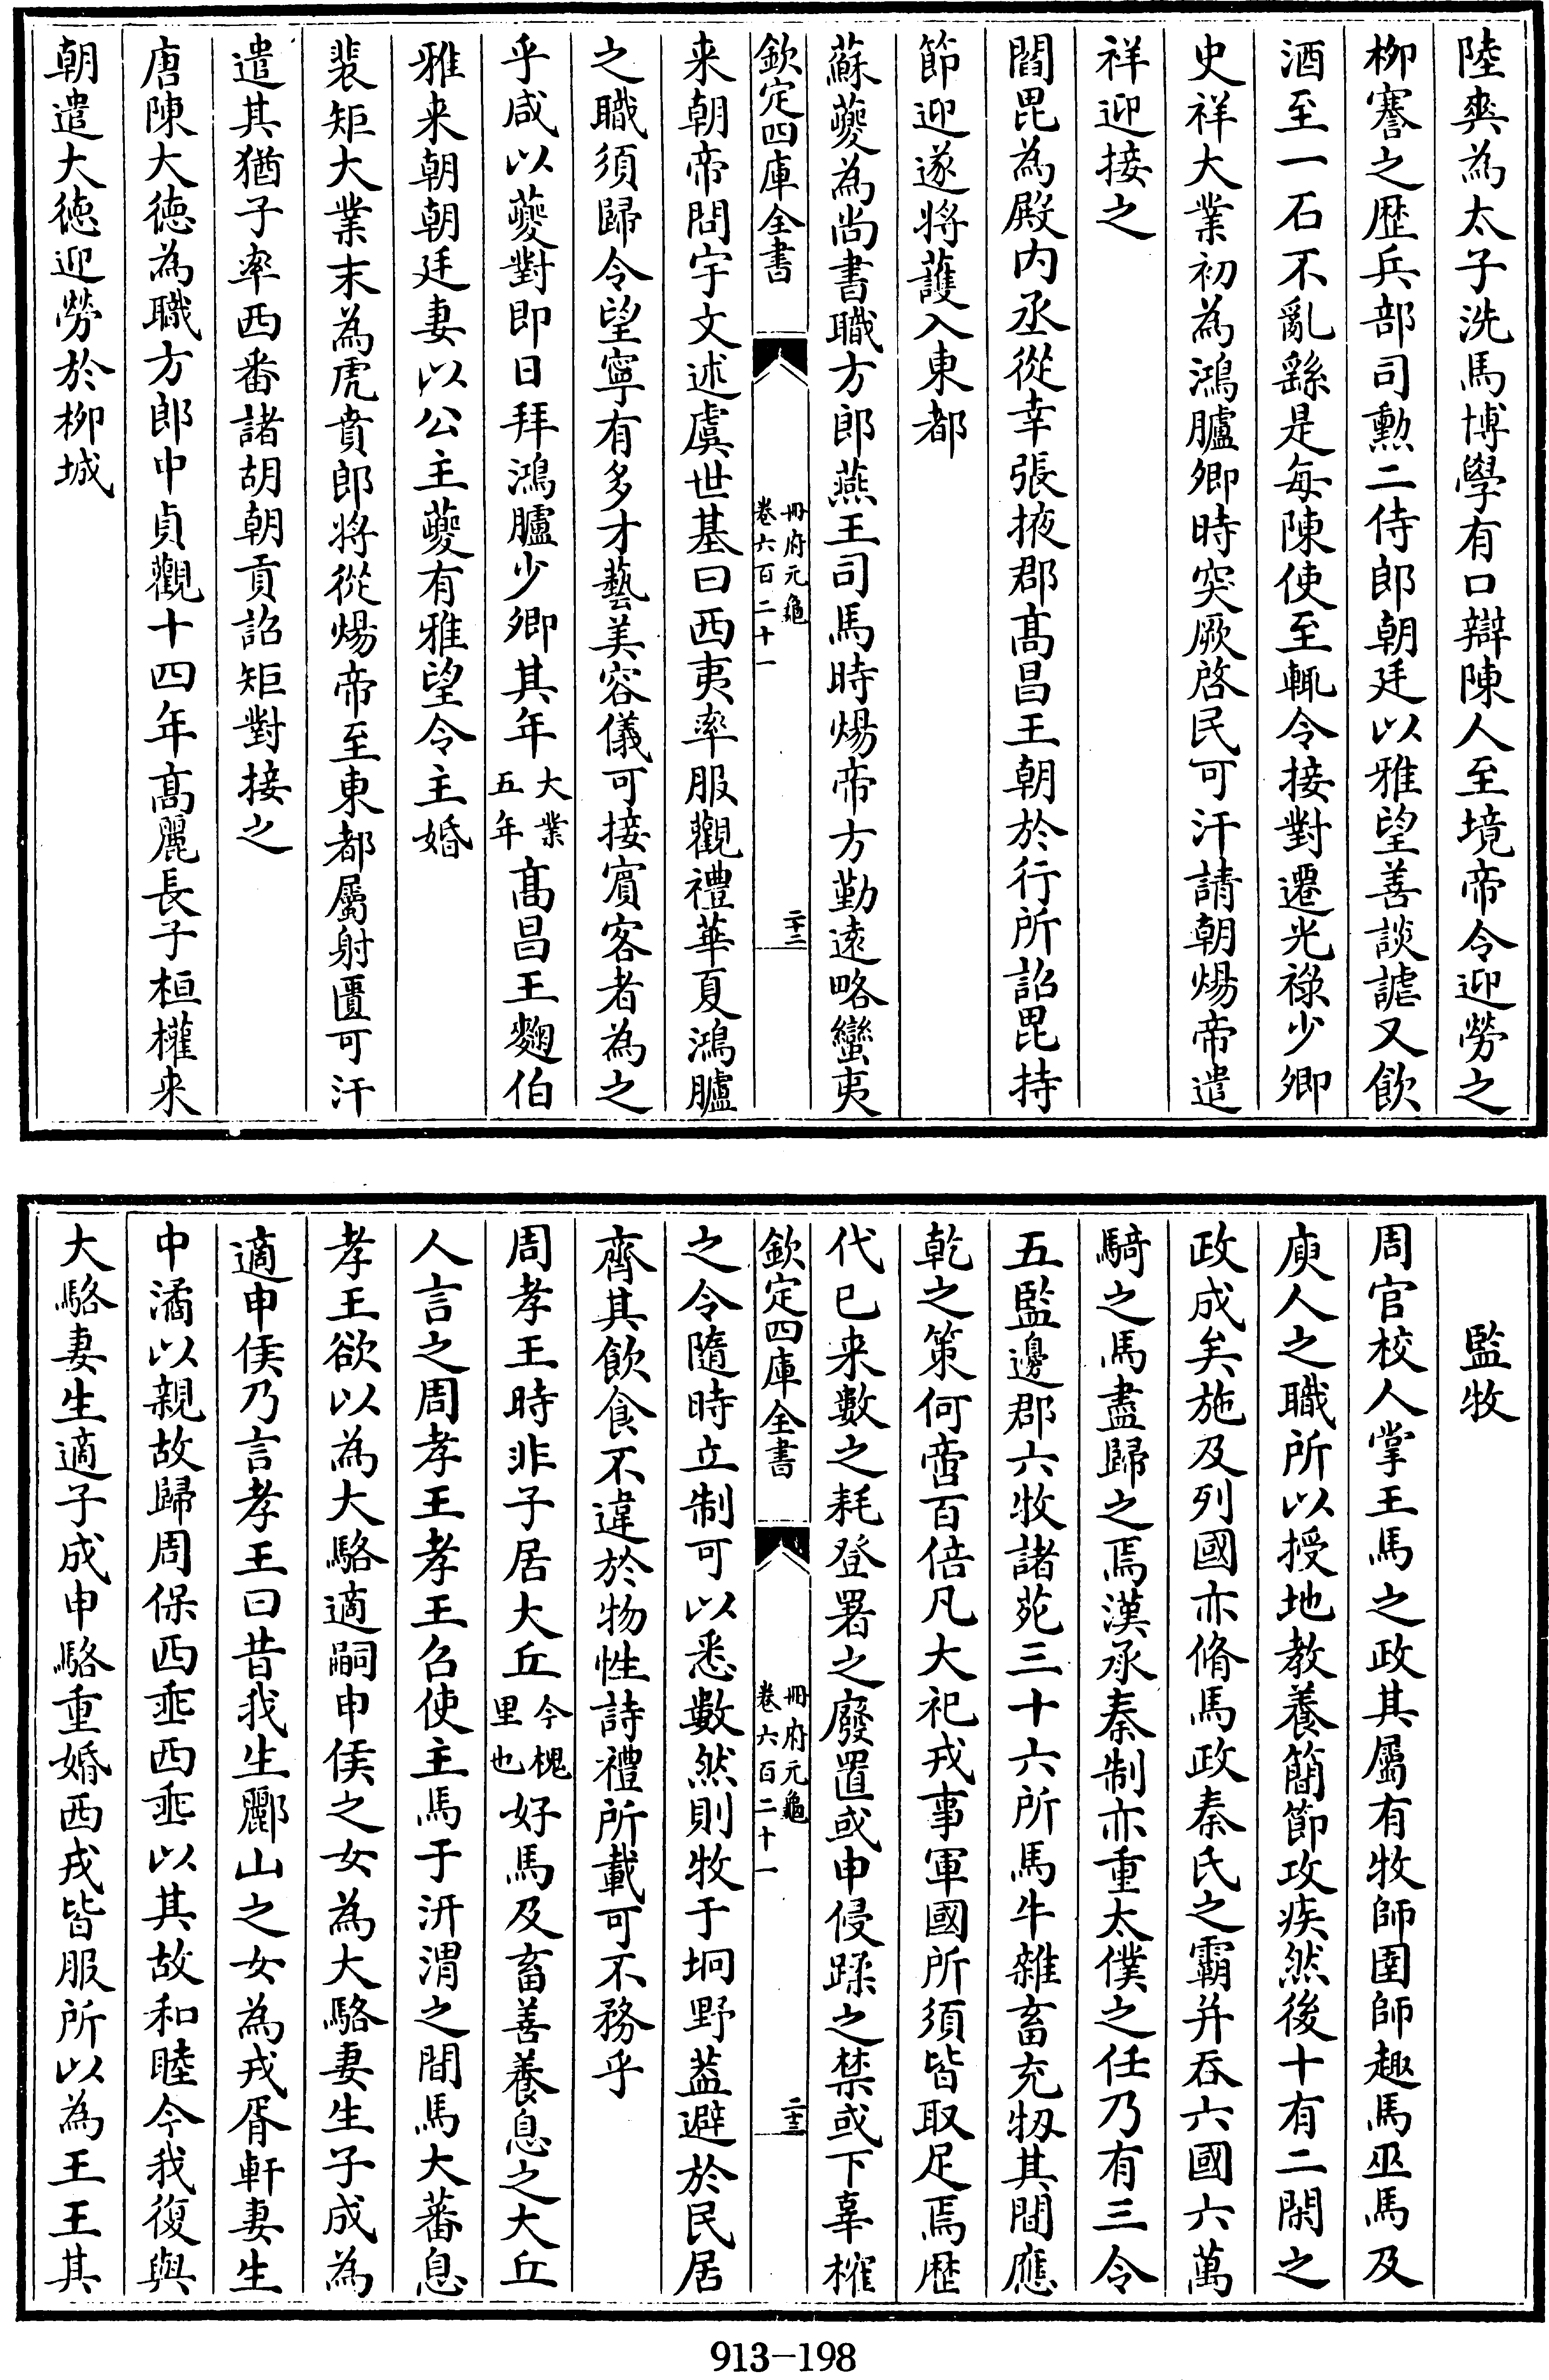 陸爽為太子洗馬博學有口辯陳人至境帝令迎勞之
柳謇之歷兵部司勲二侍郎朝廷以雅望善談謔又飲
酒至一石不亂繇是每陳使至輒令接對遷光祿少卿
史祥大業初為鴻臚卿時突厥啓民可汗請朝煬帝遣
祥迎接之
閻毘為殿内丞從幸張掖郡髙昌王朝於行所詔毘持
節迎遂將䕶入東都
蘇夔為尚書職方郎燕王司馬時煬帝方勤逺略蠻夷
欽定四庫全書
冊府元龜
卷六百二十一
二十二
来朝帝問宇文述虞世基曰西夷率服觀禮華夏鴻臚
之職須歸令望寧有多才藝美容儀可接賓客者為之
乎咸以夔對即日拜鴻臚少卿其年大業五年髙昌王麴伯
雅来朝朝廷妻以公主夔有雅望令主婚
裴矩大業末為虎賁郎将從煬帝至東都屬射匱可汗
遣其猶子率西番諸胡朝貢詔矩對接之
唐陳大徳為職方郎中貞觀十四年髙麗長子桓權来
朝遣大徳迎勞於柳城
監牧
周官校人掌王馬之政其屬有牧師圉師趣馬巫馬及
庾人之職所以授地教養簡節攻疾然後十有二閑之
政成矣施及列國亦脩馬政秦氏之霸并吞六國六萬
騎之馬盡歸之焉漢承秦制亦重太僕之任乃有三令
五監邊郡六牧諸苑三十六所馬牛雜畜充牣其間應
乾之策何啻百倍凡大祀戎事軍國所須皆取足焉歴
代已来數之耗登署之廢置或申侵蹂之禁或下辜榷
欽定四庫全書
冊府元龜
卷六百二十一
二十三
之令隨時立制可以悉數然則牧于坰野葢避於民居
齊其飲食不違於物性詩禮所載可不務乎
周孝王時非子居大丘今槐里也好馬及畜善養息之大丘
人言之周孝王孝王召使主馬于汧渭之間馬大蕃息
孝王欲以為大駱適嗣申侯之女為大駱妻生子成為
適申侯乃言孝王曰昔我生酈山之女為戎胥軒妻生
中潏以親故歸周保西垂西垂以其故和睦今我復與
大駱妻生適子成申駱重婚西戎皆服所以為王王其
913-198